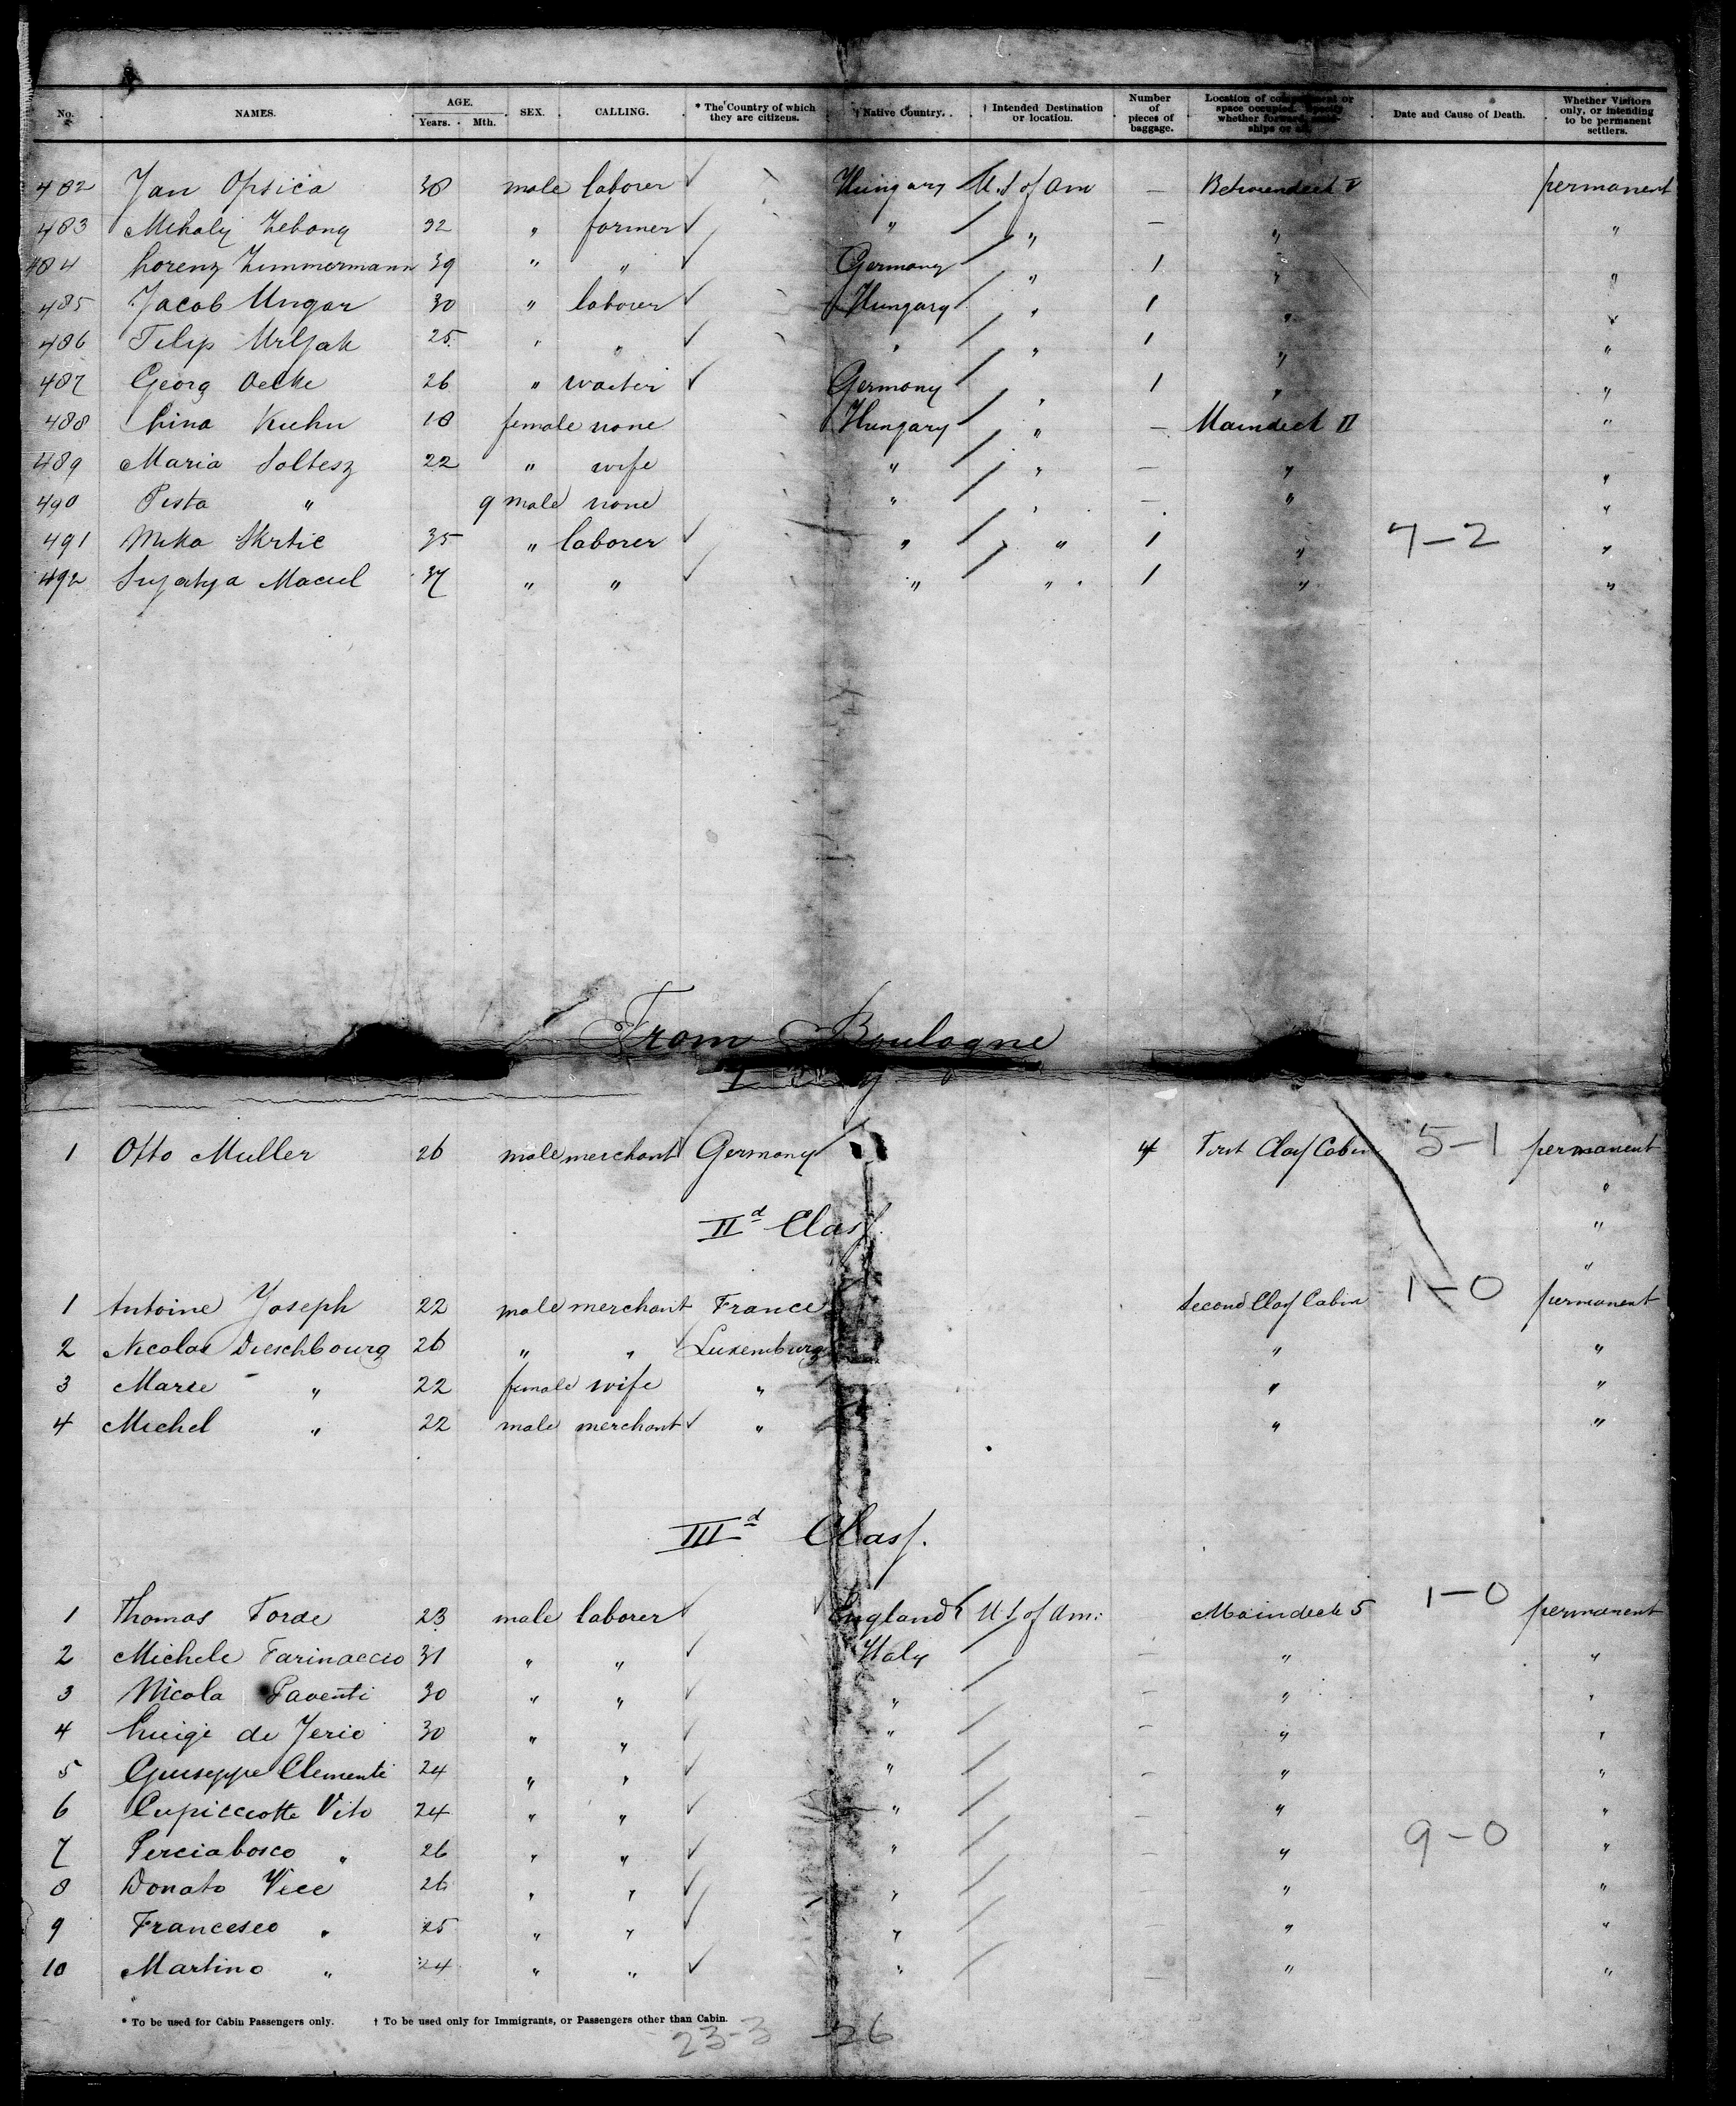 No. NAMES. AGE. Years. Mth. SEX. CALLING. * The Country of which they are citizens. † Native Country. † Intended Destination or location. Number of pieces of baggage. Location of compartment or space occupied. Specify whether forward, amidships or aft. Date and Cause of Death. Whether Visitors only, or intending to be permanent settlers.
482 Jan Opsica 38 male laborer ✓ Hungary U. S. of Am — Betweendeck V permanent
483 Mihaly Zebony 32 " farmer ✓ " " — " "
484 Lorenz Zimmermann 39 " " ✓ Germany " 1 " "
485 Jacob Ungar 30 " laborer ✓ Hungary " 1 " "
486 Filip Mrljak 25 " " ✓ " " 1 " "
487 Georg Oelke 26 " waiter ✓ Germany " 1 " "
488 Lina Kuhn 18 female none Hungary " — Maindeck II "
489 Maria Soltesz 22 " wife " " — " "
490 Pista " 9 male none " " — " "
491 Mika Skrtic 35 " laborer ✓ " " 1 " 7-2 "
492 Maciel 37 " " ✓ " " 1 " "
From Boulogne
1 Otto Muller 26 male merchant Germany 4 First Class Cabin 5-1 permanent
"
"
IId Class.
"
1 Antoine Joseph 22 male merchant France Second Class Cabin 1-0 permanent
2 Nicolas Dieschbourg 26 " " ✓ Luxemburg " "
3 Marie " 22 female wife " " "
4 Michel " 22 male merchant ✓ " " "
IIId Class.
1 Thomas Forde 23 male laborer ✓ England U. S. of Am: Maindeck 5 1-0 permanent
2 Michele Farinaccio 31 " " ✓ Italy — " "
3 Nicola Paventi 30 " " ✓ " — " "
4 Luigi de Jerio 30 " " ✓ " — " "
5 Giuseppe Clementi 24 " " ✓ " " "
6 Cupicciotte Vito 24 " " ✓ " — " "
7 Perciabosco " 26 " " ✓ " — " 9-0 "
8 Donato Vice 26 " " ✓ " — " "
9 Francesco " 25 " " ✓ " — " "
10 Martino " 24 " " ✓ " — " "
* To be used for Cabin Passengers only. † To be used only for Immigrants, or Passengers other than Cabin.
23-3 26